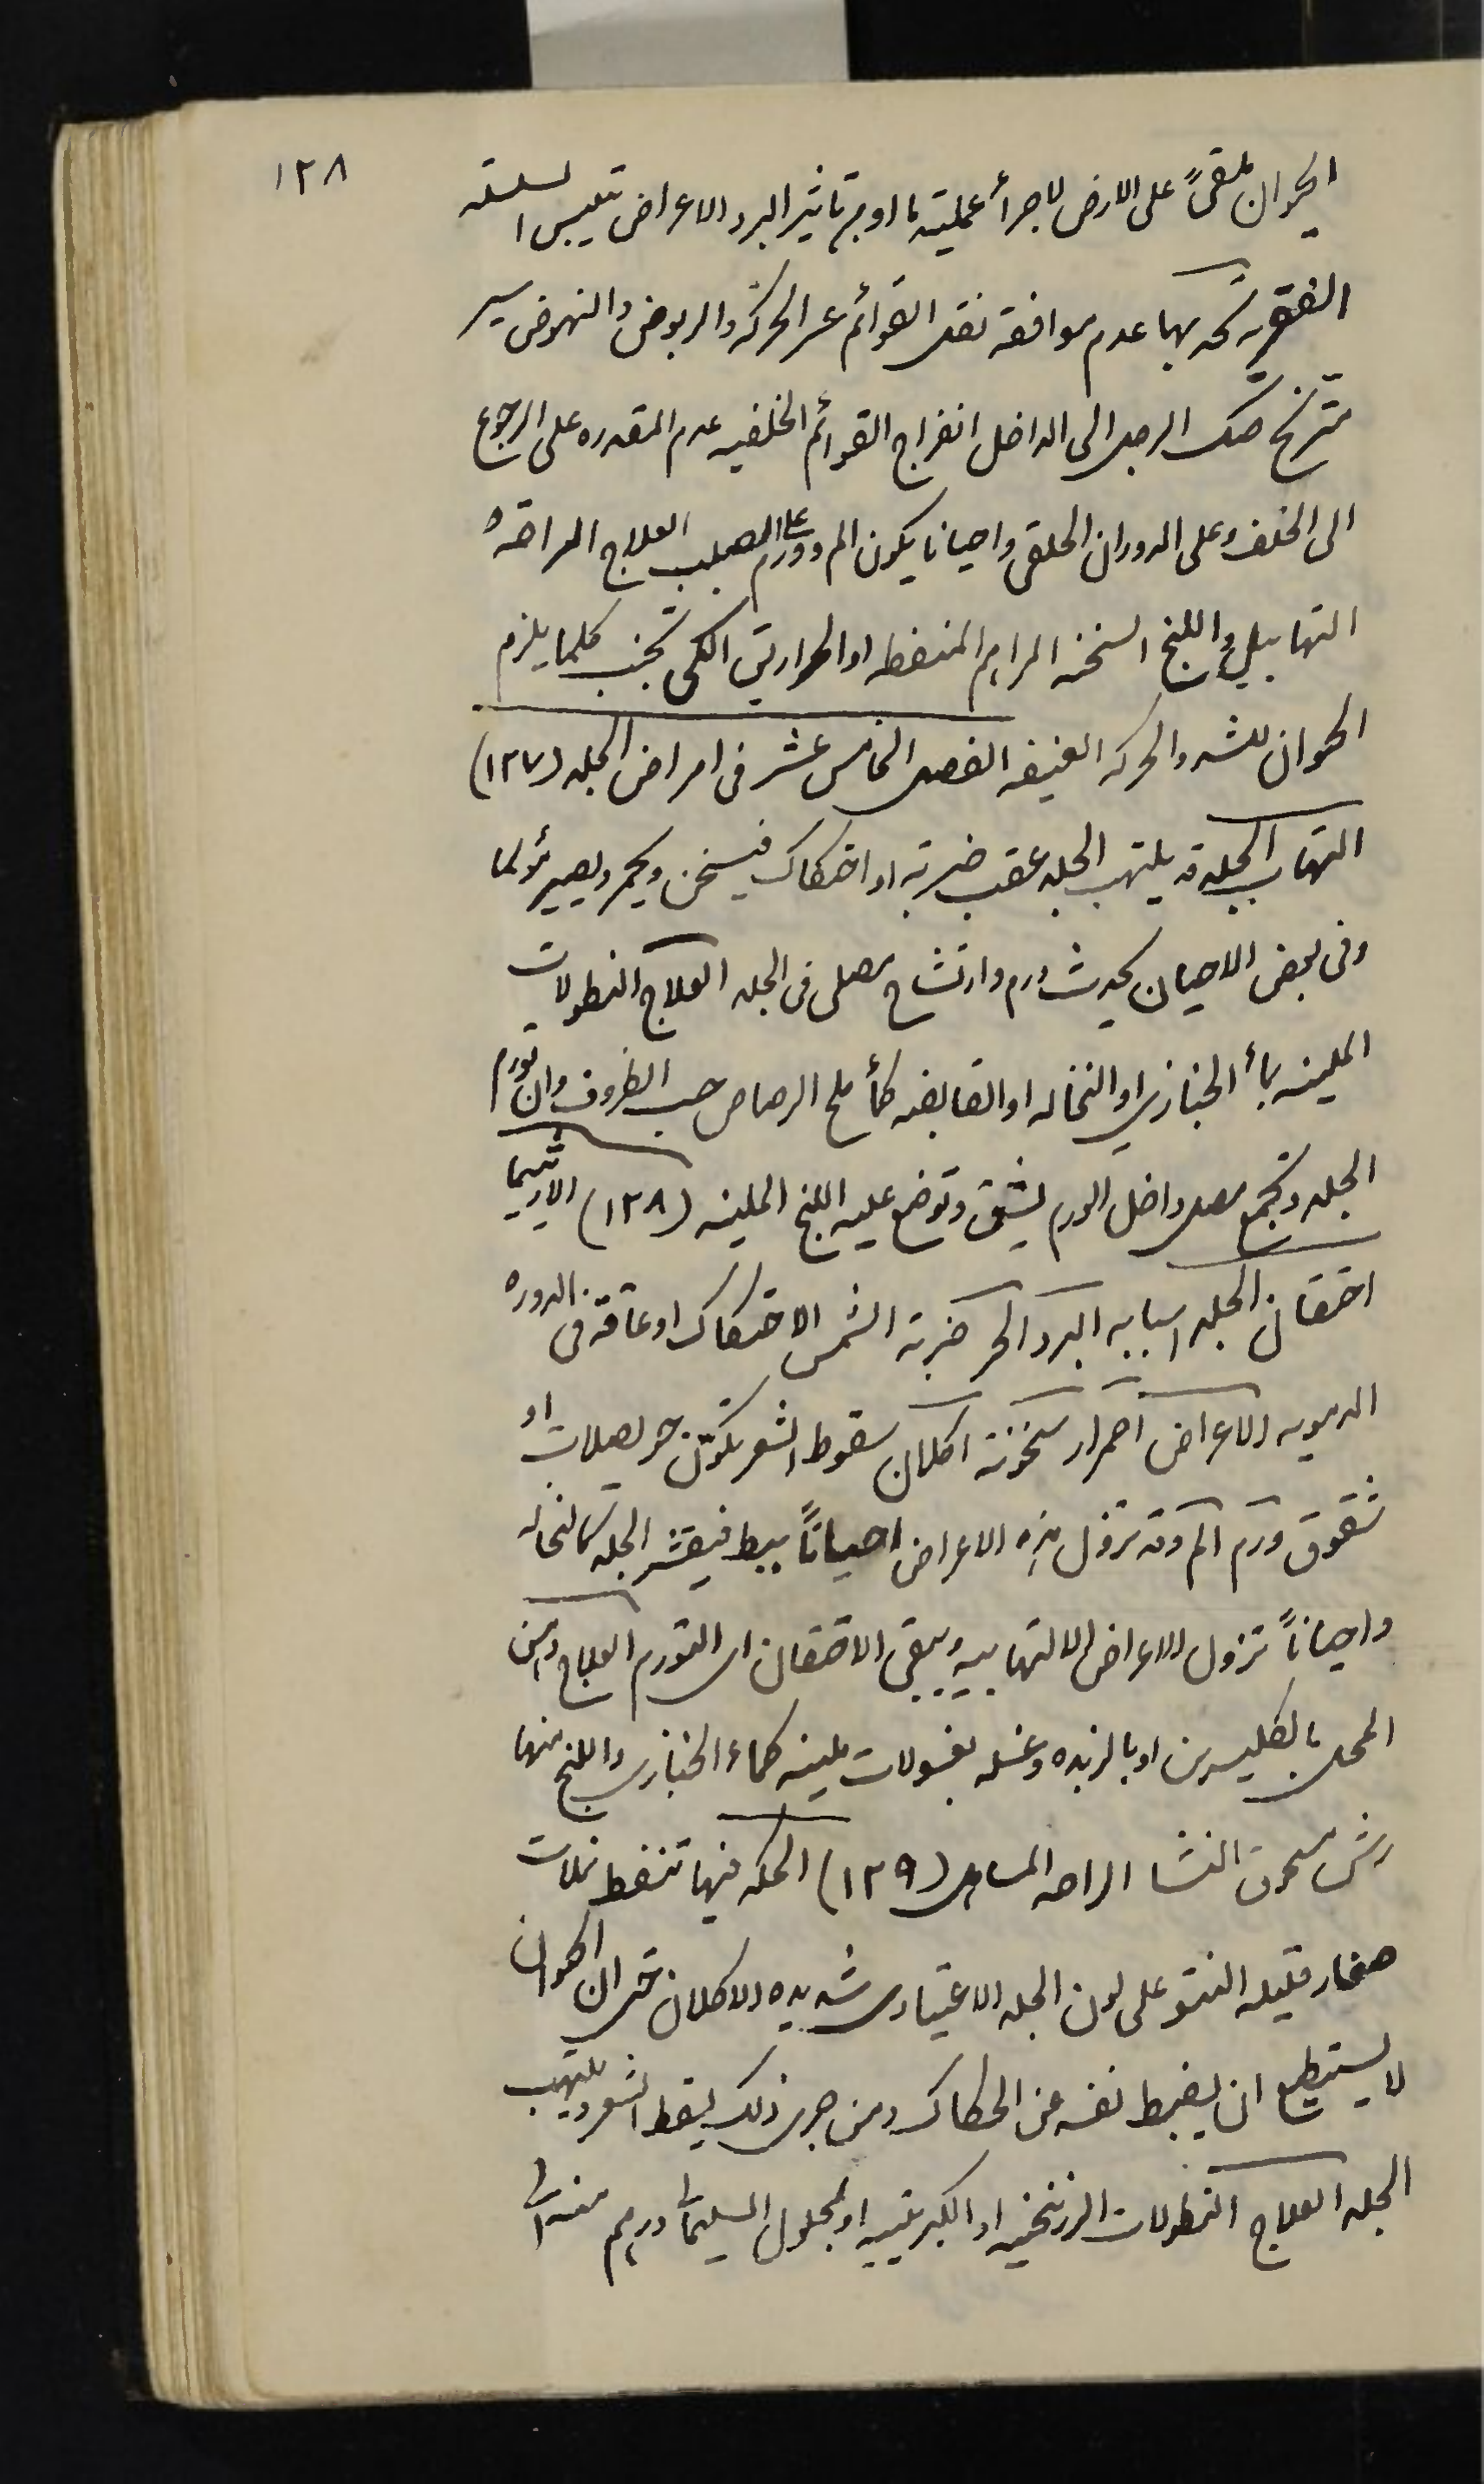 ١٢٨
الحيوان ملقىً على الارض لاجرأ عملية ما او بتاثير البرد الاعراض تيبس السلسله
الفقريه تحدبها عدم موافقة نقل القوائم عسر الحركه والربوض والنهوض سير
مترنح صكك الرجل الى الداخل انفراج القوائم الخلفيه عدم المقدره على الرجوع
الى الخلف وعلى الدوران الحلقي واحيانا يكون الم وورم على الصلب العلاج الراحة
التهابيل واللبخ السخنه المراهم المنفطه او الحواريق الكي تجنب كلما يلزم
الحيوان للشد والحركه العنيفه الفصل الخامس عشر في امراض الجلد (١٢٧)
التهاب الجلد قد يلتهب الجلد عقب ضربة او احتكاك فيسخن ويحمر ويصير مؤلما
وفي بعض الاحيان يحدث ورم وارتشاح مصلي في الجلد العلاج النطولات
الملينه بمأ الخبازي او النخاله او القابضه كمأ ملح الرصاص حسب الظروف وان تورم
الجلد وتجمع مصل داخل الورم يشق وتوضع عليه اللبخ الملينه (١٢٨) الاريتيما
احتقان الجلد اسبابه البرد الحر ضربة الشمس الاحتكاك او عاقة في الدوره
الدمويه الاعراض احمرار سخونة اكلان سقوط الشعر تكوّن حويصلات او
شقوق ورم الم وقد تزول هذه الاعراض احياناً ببط فيقشر الجلد كالنخاله
واحياناً تزول الاعراض الالتهابيه ويبقى الاحتقان اي التورم العلاج دهن
المحل بالكليسرين او بالزبده وغسله بغسولات ملينه كماء الخبازي واللبخ منها
رش مسحوق النشا الراحه المسا (١٢٩) الحكه فيها تنفط نملات
صغار قليله النتو على لون الجلد الاعتيادي شديده الاكلان حتى ان الحيوان
لا يستطيع ان يضبط نفسه عن الحكاك ومن جرى ذلك يسقط الشعر ويلتهب
الجلد العلاج النطولات الزرنيخيه او الكبريتيه او بمحلول السليماني درهم منه الى